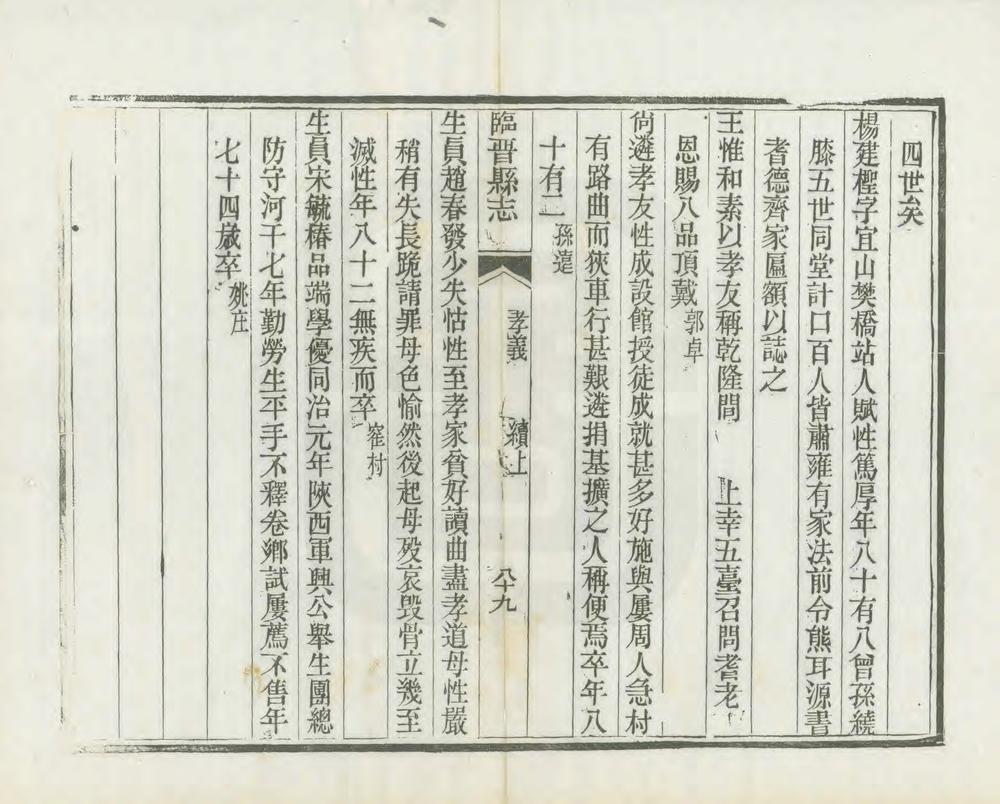 四世矣
楊建檉字宜山樊橋站人賦性篤厚年八十有八曾孫繞
膝五世同堂計口百人皆肅雍有家法前令熊耳源書
耆德齊家匾額以誌之
王惟和素以孝友稱乾隆間　上幸五臺召問耆老
恩賜八品頂戴郭卓
尙遴孝友性成設館授徒成就甚多好施與屢周人急村
有路曲而狹車行甚艱遴捐基擴之人稱便焉卒年八
十有二孫遠
臨晋縣志　孝義　續上　八十九
生員趙春發少失怙性至孝家貧好讀曲盡孝道母性嚴
稍有失長跪請罪母色愉然後起母歿哀毀骨立幾至
滅性年八十二無疾而卒窰村
生員宋毓椿品端學優同治元年陝西軍興公舉生團總
防守河干七年勤勞生平手不釋卷鄉試屢薦不售年
七十四歲卒姚庄